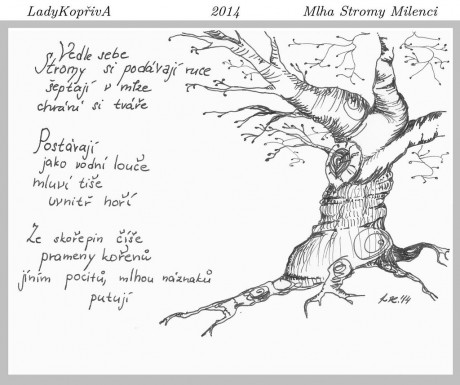 LadyKopřivA 2014 Mlha Stromy Milenci
Vedle sebe
Stromy si podávají ruce
šeptají v mlze
chrání si tváře
Postávají
jako vodní louče
mluví tiše
uvnitř hoří
Ze skořepin číše
prameny kořenů
jíním pocitů, mlhou náznaků
putují